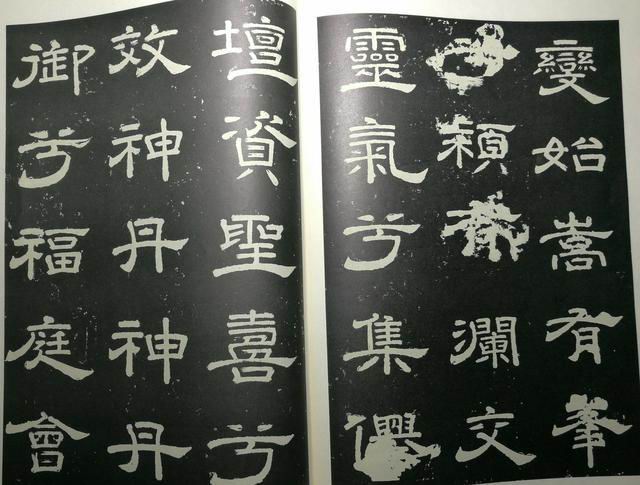 變始嵩有峯
穎瀾交
靈氣兮集僊
壇資聖喜兮
效神丹神丹
御兮福庭會